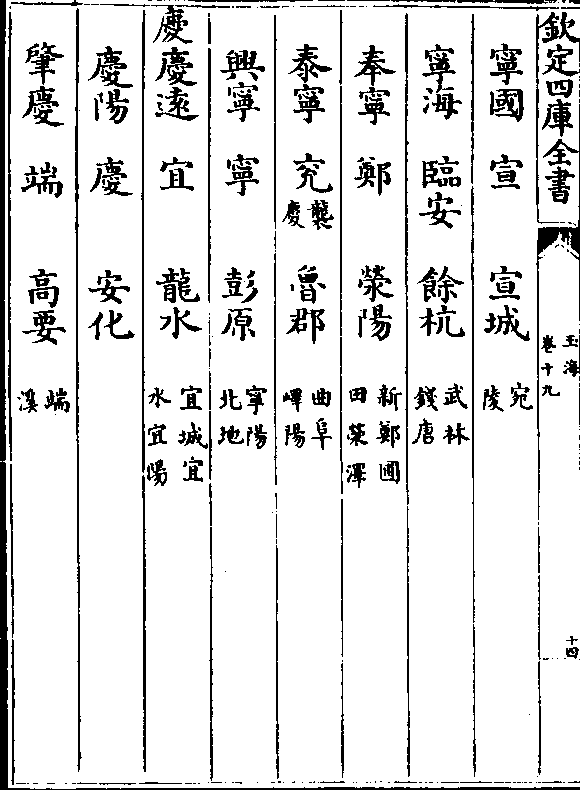 欽定四庫全書
玉海
卷十九
十四
寧國 宣 宣城 宛陵
寧海 臨安 餘杭 武林錢唐
奉寧 鄭 滎陽 新鄭圃田滎澤
泰寧 兖 襲慶 魯郡 曲阜嶧陽
興寧 寧 彭原 寧陽北地
慶慶遠 宜 龍水 宜城宜水宜陽
慶陽 慶 安化
肇慶 端 高要 端溪